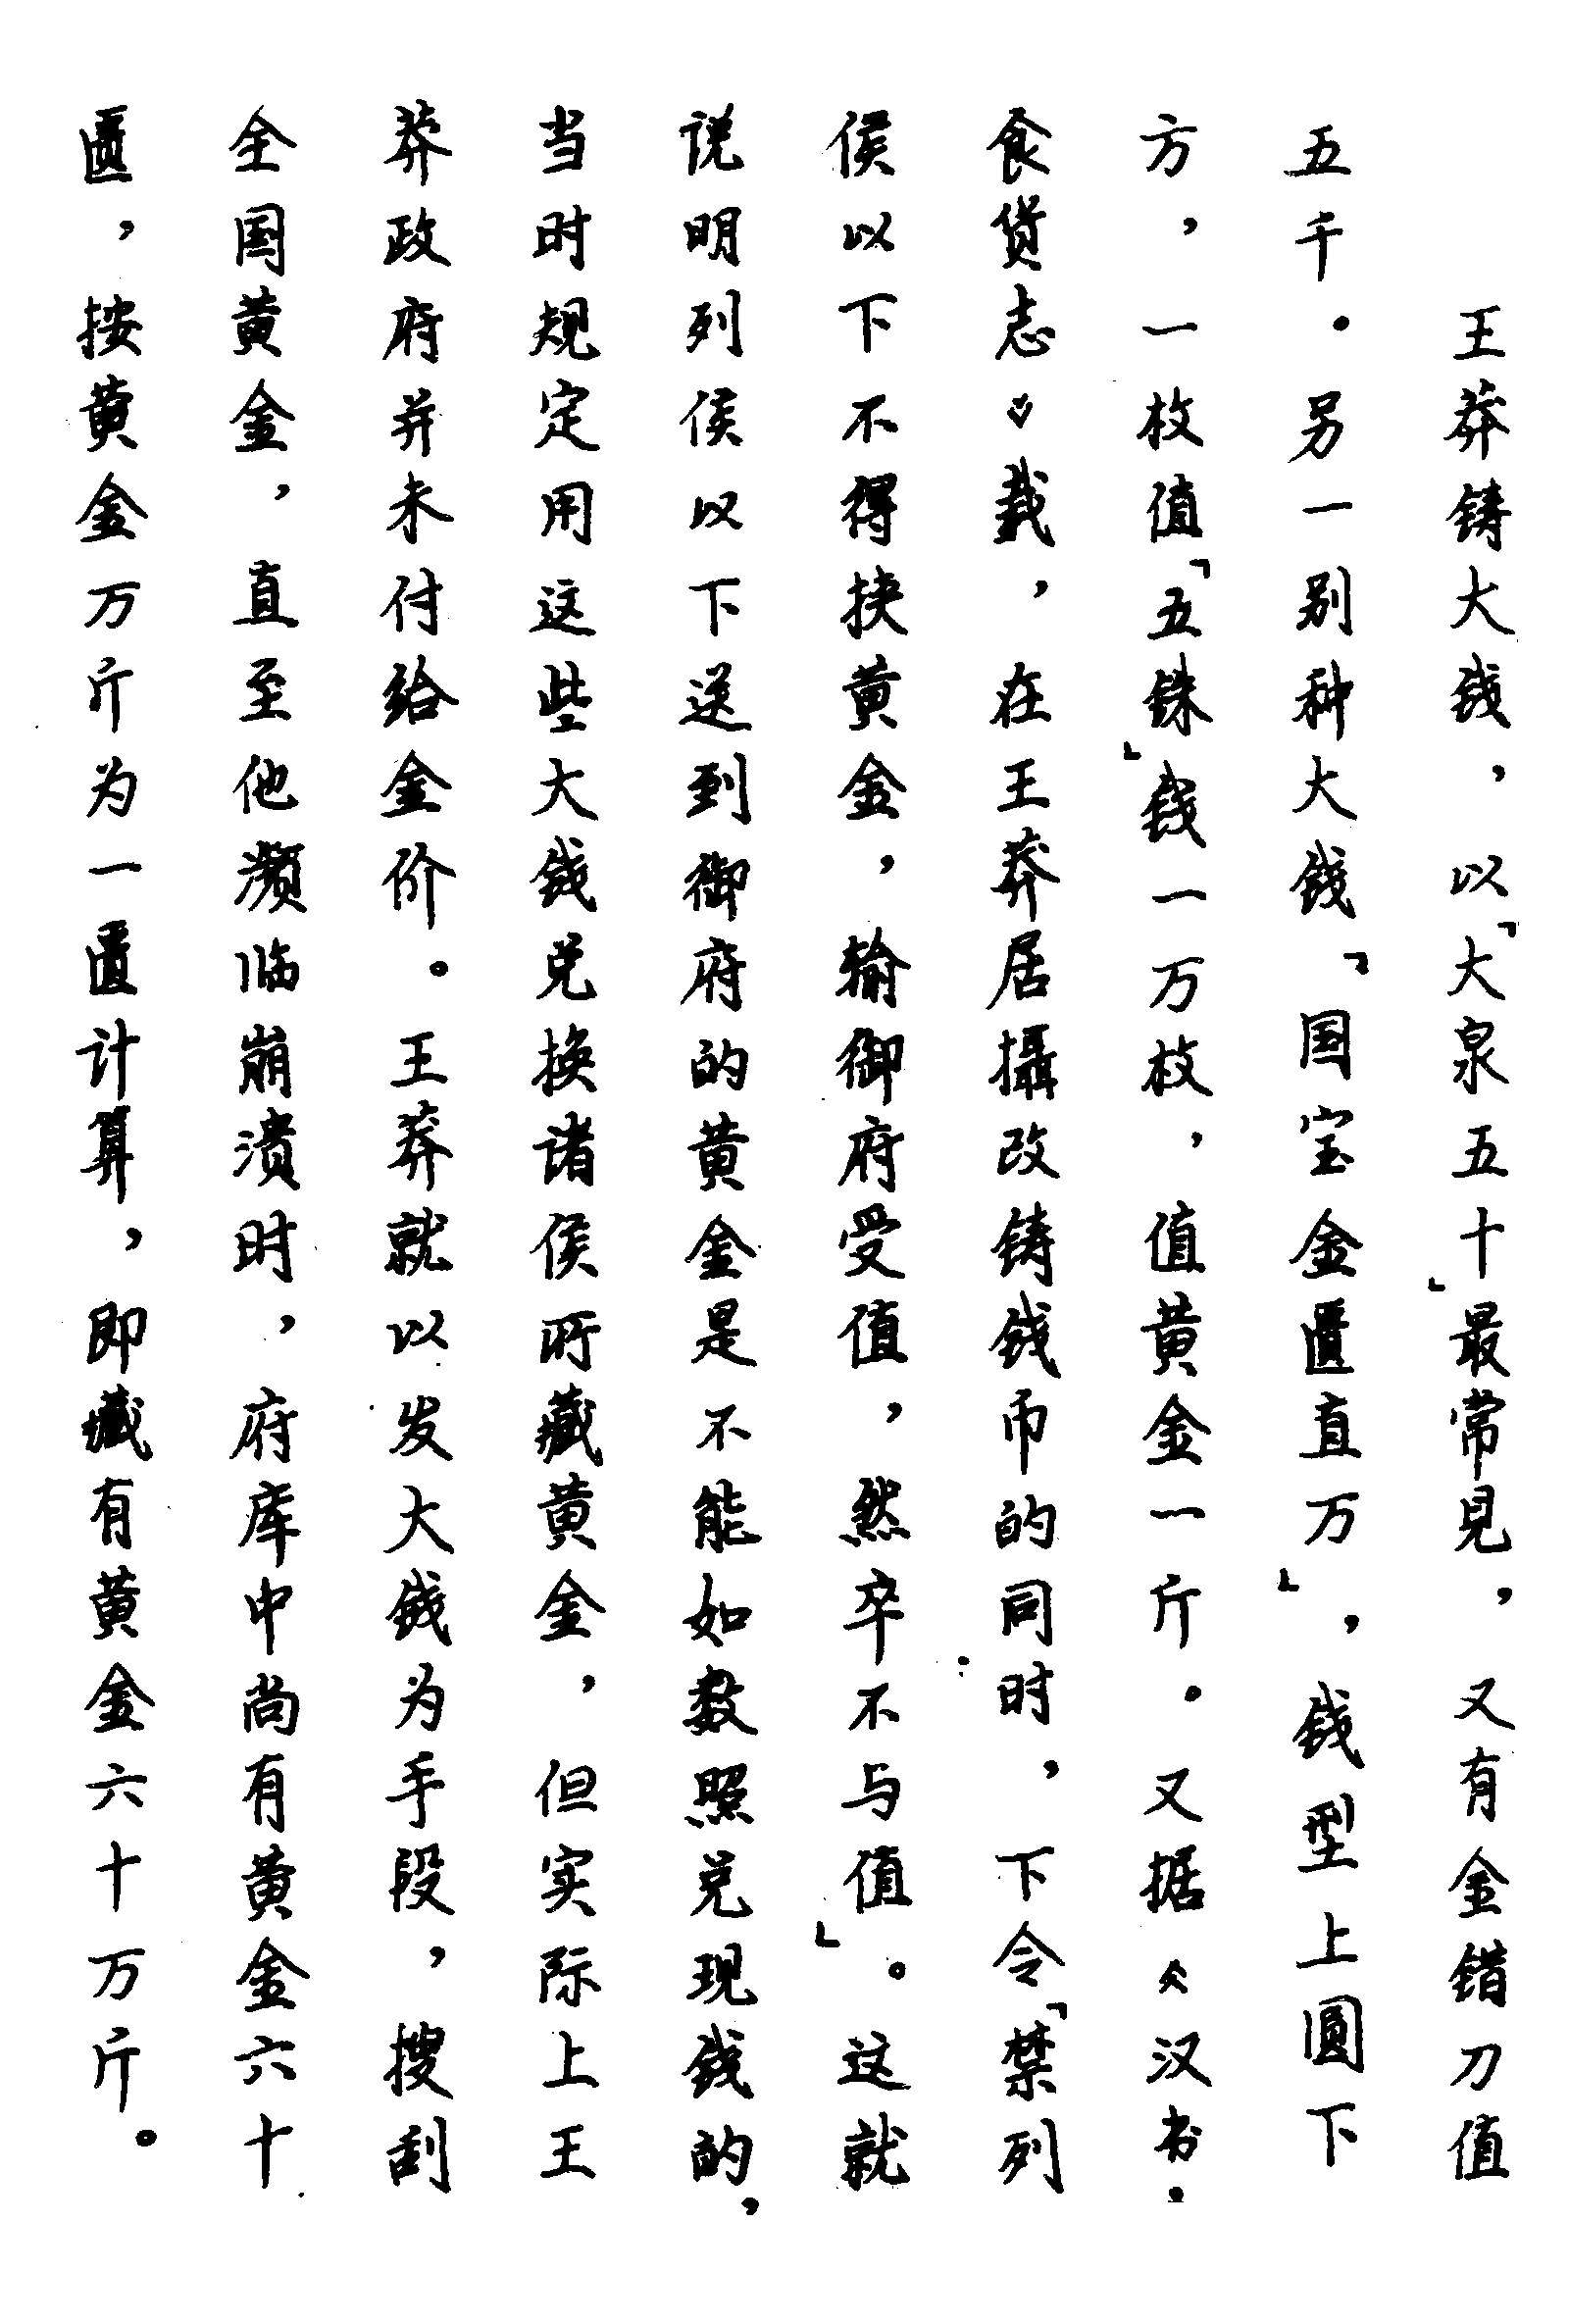 王莽铸大钱，以「大泉五十」最常見，又有金错刀值
五千。另一别种大钱「国宝金匱直万」，钱型上圆下
方，一枚值「五铢」钱一万枚，值黄金一斤。又据《汉书·
食货志》载，在王莽居攝改铸钱币的同时，下令「禁列
侯以下不得挟黄金，输御府受值，然卒不与值」。这就
说明列侯以下送到御府的黄金是不能如数照兑现钱的，
当时规定用这些大钱兑换诸侯所藏黄金，但实际上王
莽政府并未付给金价。王莽就以发大钱为手段，搜刮
全国黄金，直至他濒临崩溃时，府库中尚有黄金六十
匱，按黄金万斤为一匱计算，即藏有黄金六十万斤。